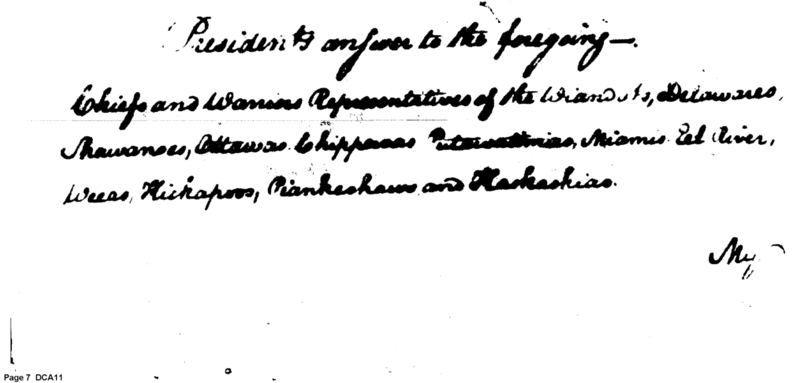 Presidents answer to the foregoing—.
Chiefs and Warriors Representatives of the Wiandots, Delawares,
Shawanoes, Ottawas Chippewas Putawatimias, Miamis Eel River,
Weeas, Kickapoos, Piankeshaws and Kaskaskias.
My
Page 7 DCA11